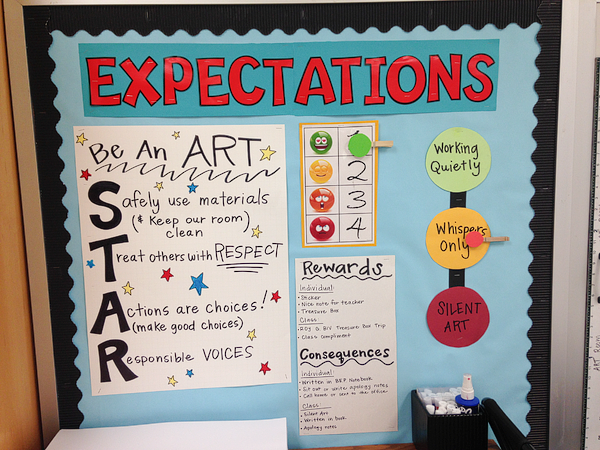 EXPECTATIONS
Be An ART
Safely use materials
(& Keep our room)
clean
Treat others with RESPECT
Actions are choices!
(make good choices)
Responsible VOICES
1
2
3
4
Rewards
Individual:
• Sticker
• Nice note for teacher
• Treasure Box
Class:
Treasure Box Trip
• Class Compliment
Consequences
Individual:
• Written in BEP Notebook
• Sit out or write apology notes
• Call home or sent to the office
Class:
• Silent Art
• Written in book
• Apology notes
Working
Quietly
Whispers
Only
SILENT
ART